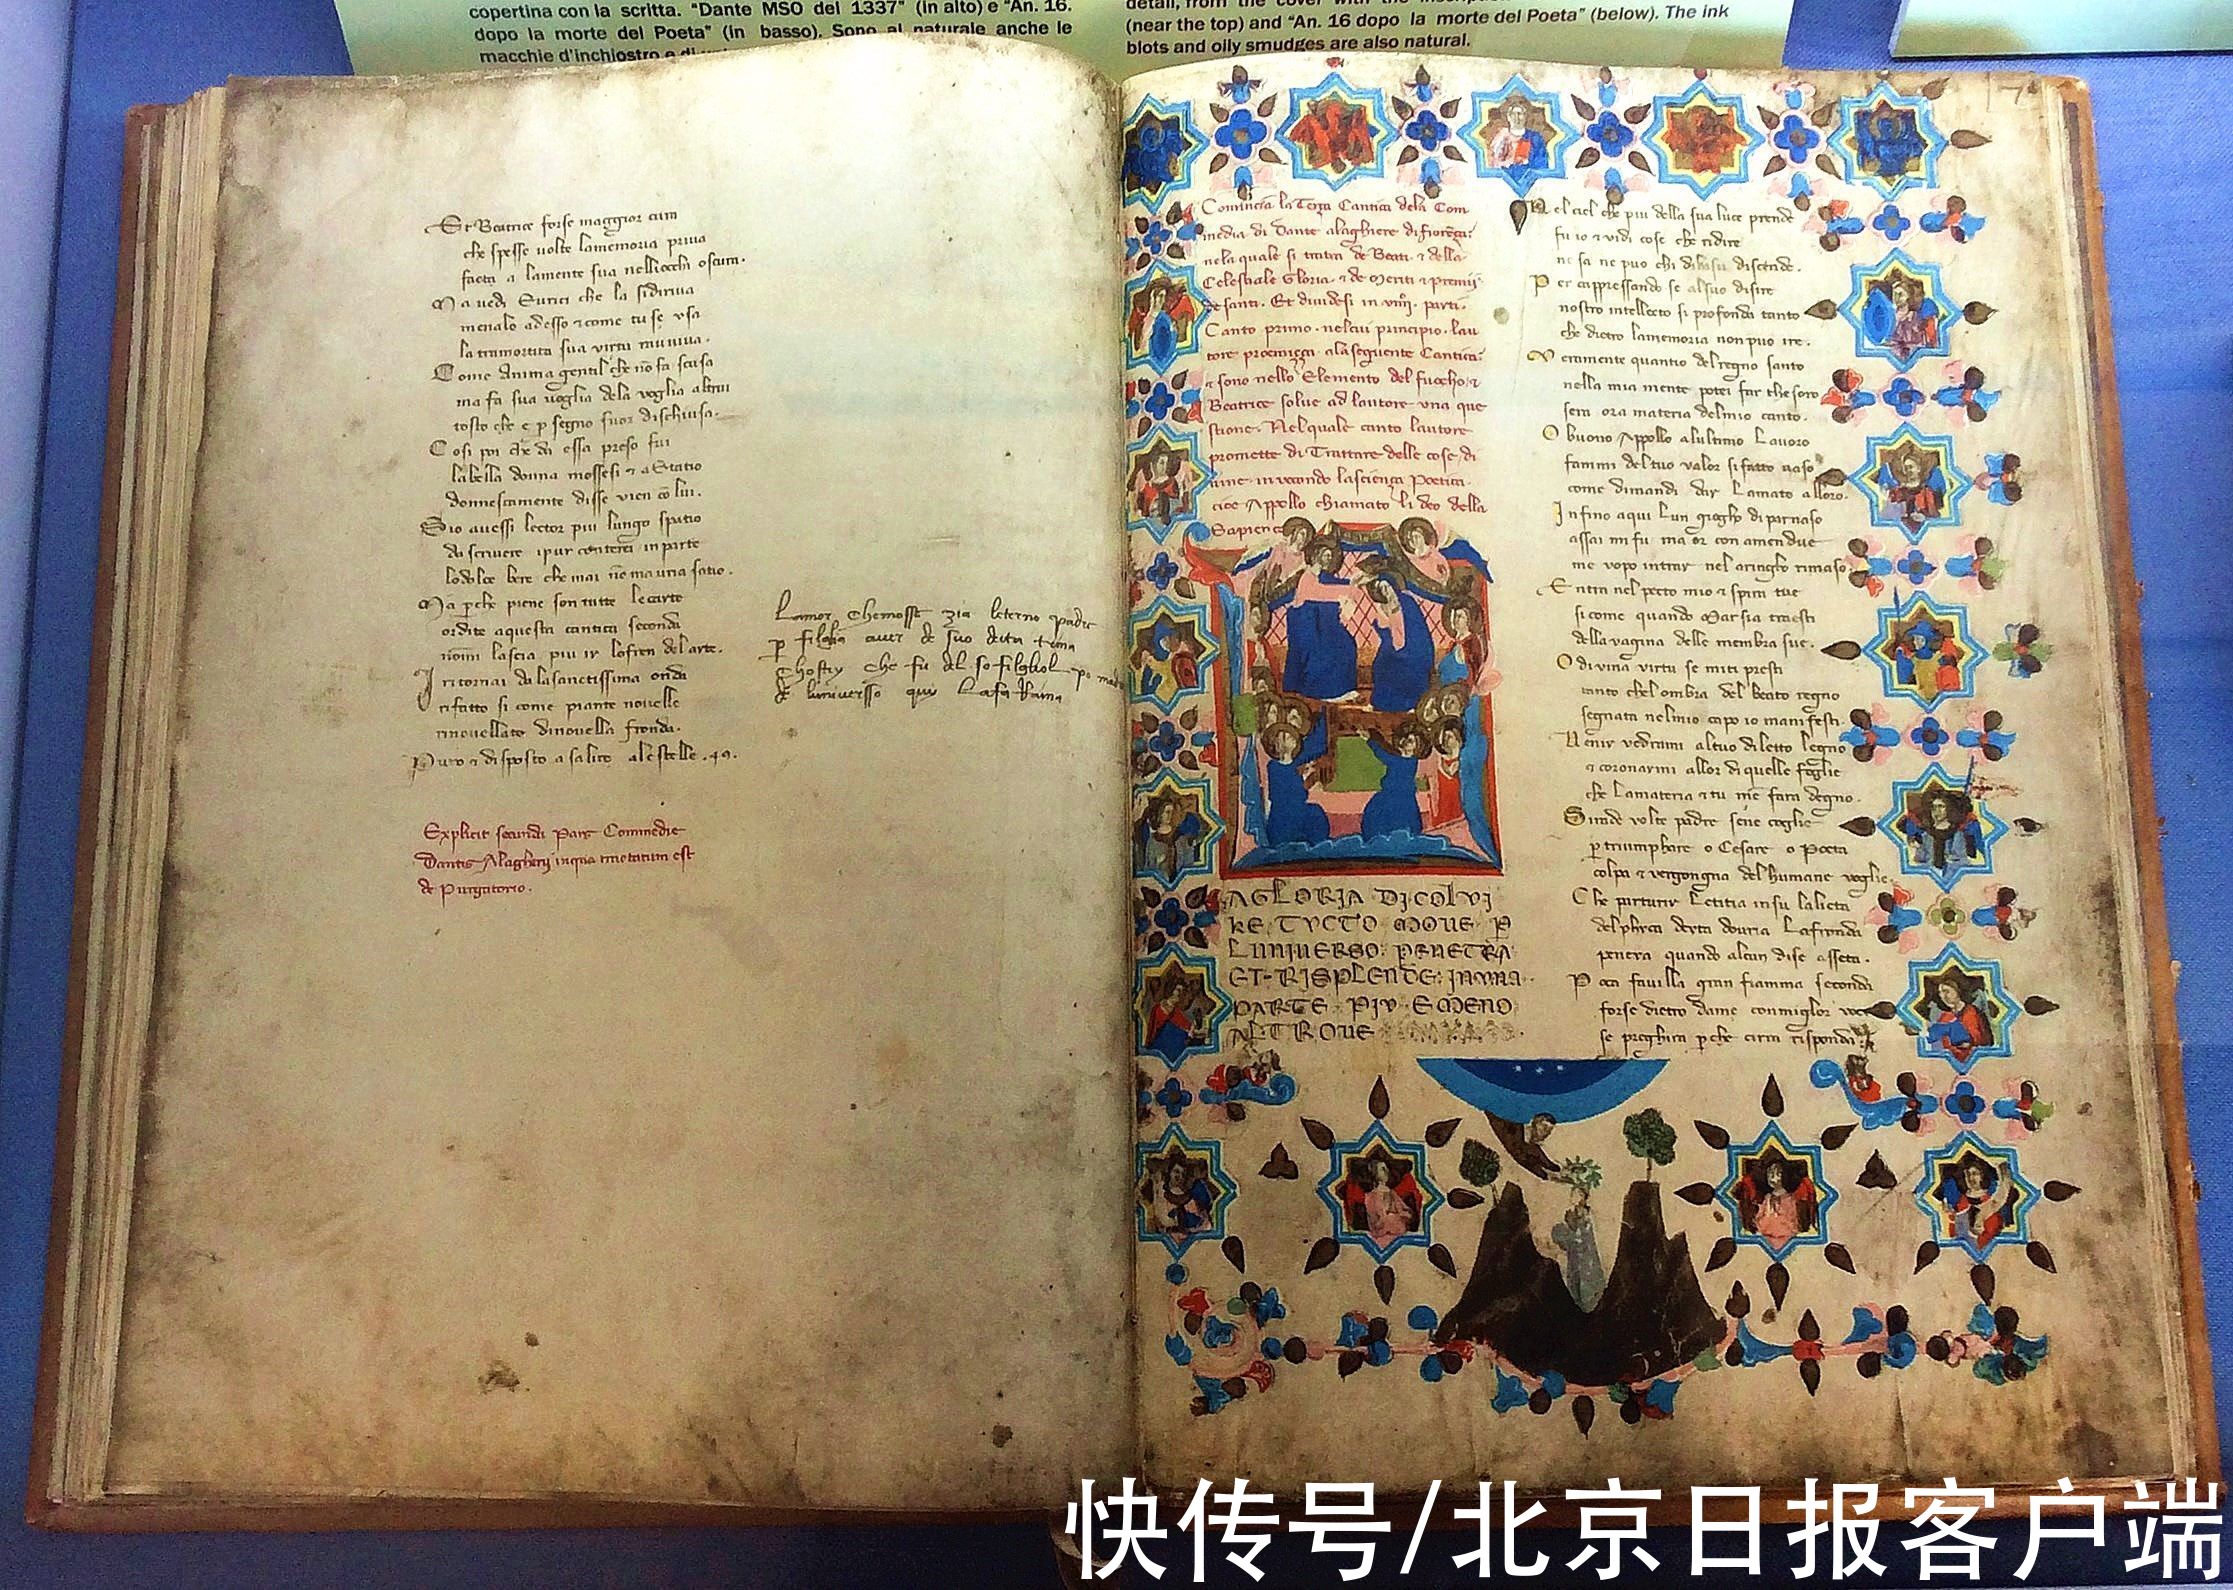 copertina con la scritta. "Dante MSO del 1337" (in alto) e "An. 16.
dopo la morte del Poeta" (in basso). Sono al naturale anche le
macchie d'inchiostro e di
detail, from the cover with the
(near the top) and "An. 16 dopo la morte del Poeta" (below). The ink
blots and oily smudges are also natural.
Et Beatrice forse maggior cura
che spesse volte lamemoria priva
facta a lamente sua nelliocchi oscura.
Ma vedi Eunoi che la si diriva
menalo adesso & come tu se usa
la tramortita sua virtu raviva.
Come Anima gentil che no fa scusa
ma fa sua voglia dela voglia altrui
tosto che e p segno fuor dischiusa.
Cosi poi che di essa preso fui
la bella donna mossesi & a Statio
donnescamente disse vien co lui.
Sio avessi lector piu lungo spatio
da scrivere ipur in parte
lo dolce bere che mai no mavria satio.
Ma p che piene son tutte le carte
ordite a questa cantica seconda
lascia piu ir lo fren del arte.
I ritornai da la sanctissima onda
rifatto si come piante novelle
rinovellate di novella fronda.
Puro & disposto a salire ale stelle.
Explicit secunda Pars Commedie
Dantis Alagherii in qua tractatum est
de Purgatorio.
Lamor che mosse zia leterno padre
p figlia aver de suo
che fu del so figliol
de luniversso qui la fa
Comincia la Terza Cantica dela Com
media di Dante alaghiere di fiorença:
nela quale si tratta de Beati & della
Celestiale Gloria & de meriti & premii
de santi. Et dividesi in parti.
Canto primo nel cui principio lau
tore ala sequente Cantica
& sono nello Elemento del fuocho &
Beatrice solve ad lautore una que
stione. Nel quale canto lautore
promette di Trattare delle cose di
vine invocando la sciença Poetica
cioe Appollo chiamato li deo della
Sapiença
A GLORIA DI COLUI
KE TUCTO MOVE P
LUNIVERSO PENETRA
ET RISPLENDE IN UNA
PARTE PIU E MENO
ALTROVE
Nel ciel che piu della sua luce prende
fu io & vidi cose che ridire
ne sa ne puo chi di la su discende.
Per che appressando se al suo disire
nostro intellecto si profonda tanto
che dietro la memoria non puo ire.
Veramente quantio del regno santo
nella mia mente potei far thesoro
sera ora materia del mio canto.
O buono Appollo alultimo Lavoro
fammi del tuo valor si fatto vaso
come dimandi dar Lamato alloro.
Infino a qui lun giogho di parnaso
assai mi fu ma or con amendue
me uopo intrar nel aringho rimaso.
Entra nel pecto mio & spira tue
si come quando Marsia traesti
della vagina delle membra sue.
O divina virtu se mi ti presti
tanto che lombra del beato regno
segnata nel mio capo io manifesti.
Venir vedrami al tuo diletto legno
& coronarmi allor di quelle foglie
che Lamateria & tu me fara degno.
Si rade volte padre sene coglie
p triumphare o Cesare o Poeta
colpa & vergongna del humane voglie.
Che parturir Letitia in su la lieta
delphyca deyta dovria La fronda
peneia quando alcun di se asseta.
Poca favilla gran fiamma seconda
forse dietro da me con miglor voce
se preghera p che cirra risponda.
快传号/北京日报客户端